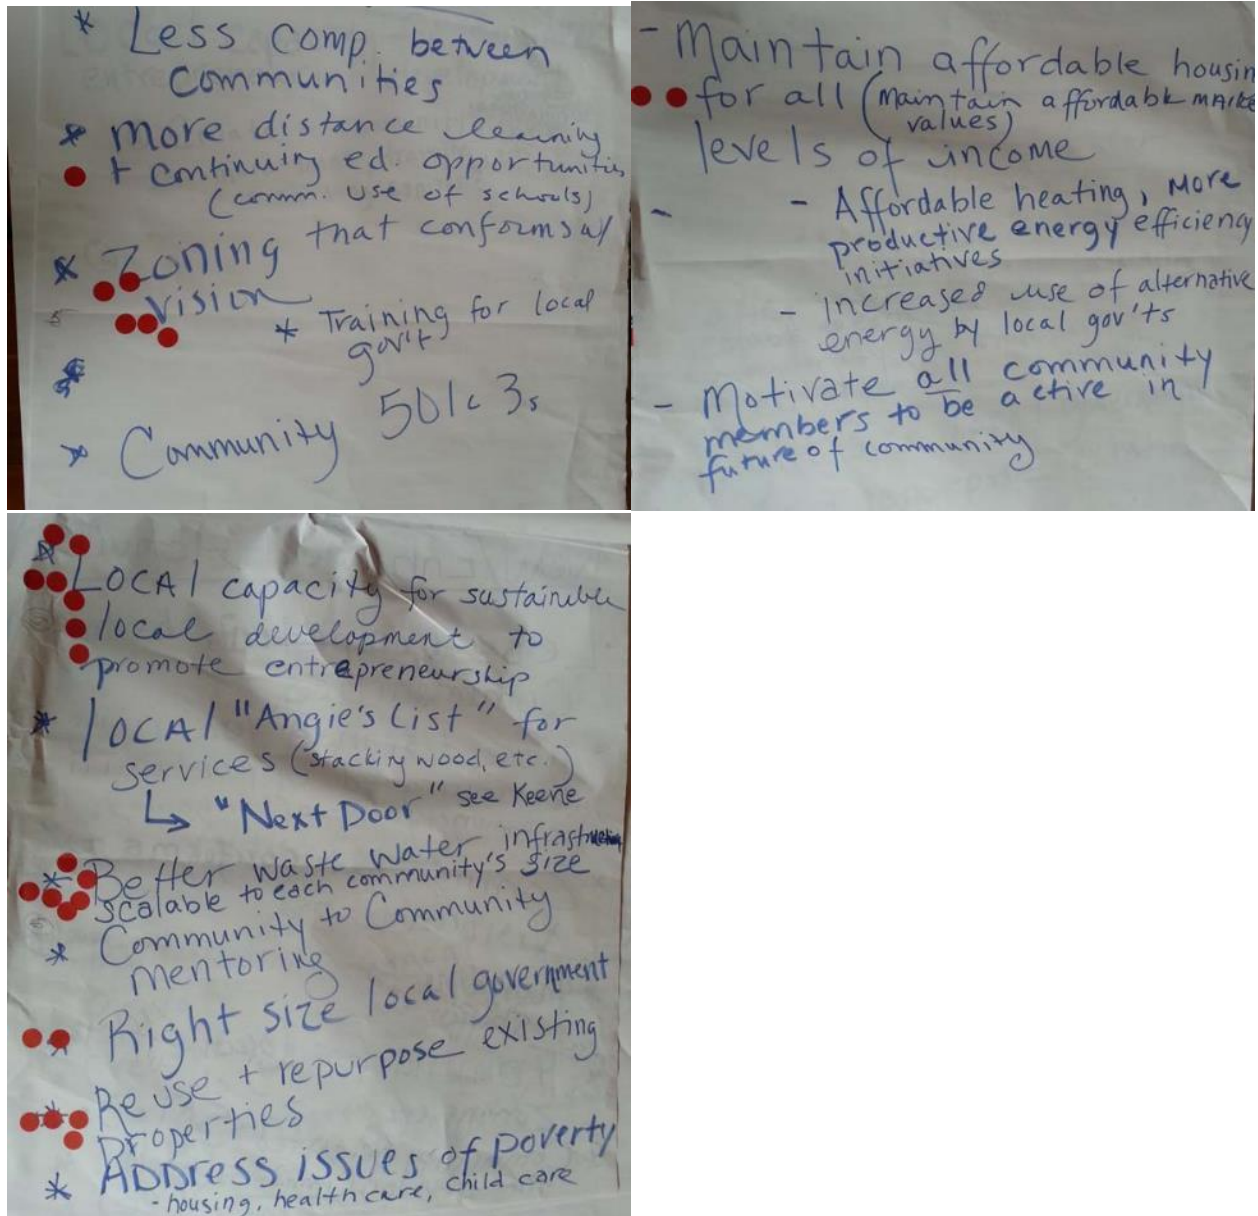 * Less comp. between
communities
* more distance learning
+ continuing ed. opportunities
(comm. use of schools)
* Zoning that conforms w/
vision
* Training for local
gov't
* Community 501c 3s
- Maintain affordable housin
for all (maintain affordable marke
values)
levels of income
- Affordable heating, more
productive energy efficiency
initiatives
- increased use of alternative
energy by local gov'ts
- Motivate all community
members to be active in
future of community
* Local capacity for sustainable
local development to
promote entrepreneurship
* local "Angie's List" for
services (stacking wood, etc.)
↳ "Next Door" see Keene
* Better waste water infrastructure
scalable to each community's size
* Community to Community
mentoring
* Right size local government
* Reuse + repurpose existing
properties
* Address issues of poverty
- housing, health care, child care